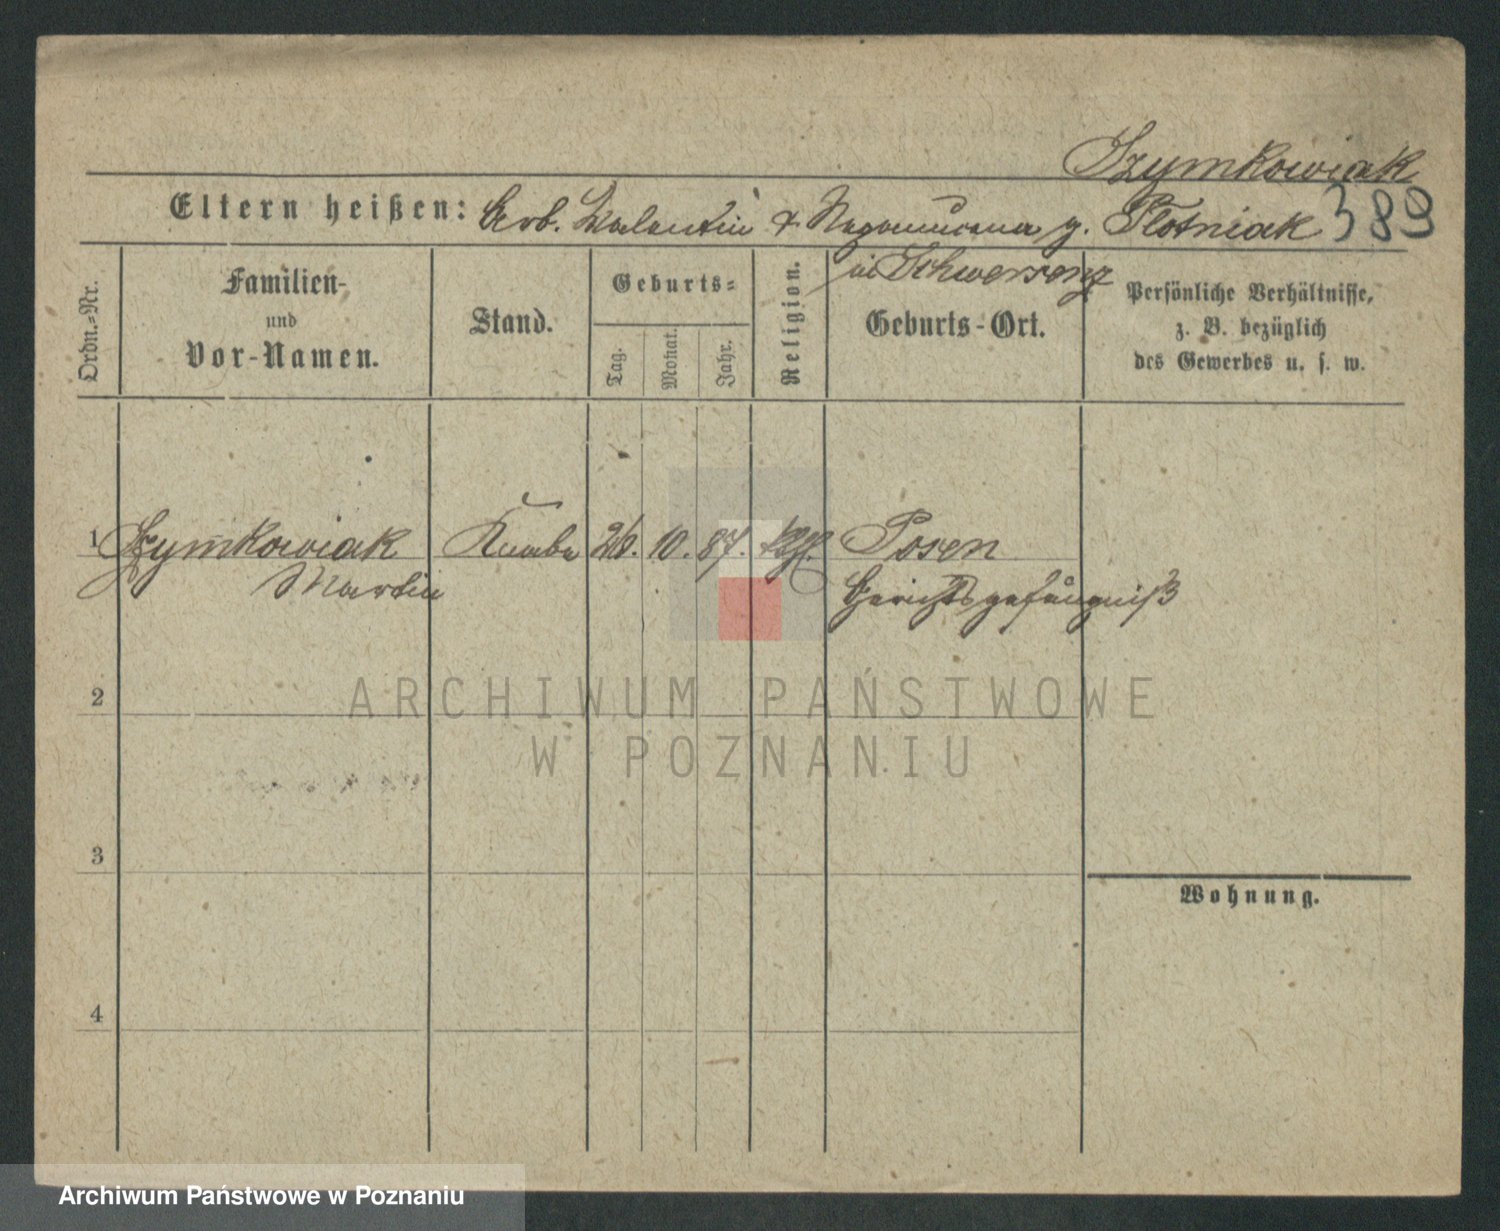 Szymkowiak
389
Eltern heißen: Arb. Valentin & Nepomucena g. Płotniak
in Schwersenz
Ordn.-Nr.
Familien-
und
Vor-Namen.
Stand.
Geburts-
Tag.
Monat.
Jahr.
Religion.
Geburts-Ort.
Persönliche Verhältnisse,
z. B. bezüglich
des Gewerbes u. s. w.
1 Szymkowiak Knabe 26. 10. 87. kth. Posen
Martin Gerichtsgefängniß
2
ARCHIWUM PAŃSTWOWE
W POZNANIU
3
Wohnung.
4
Archiwum Państwowe w Poznaniu